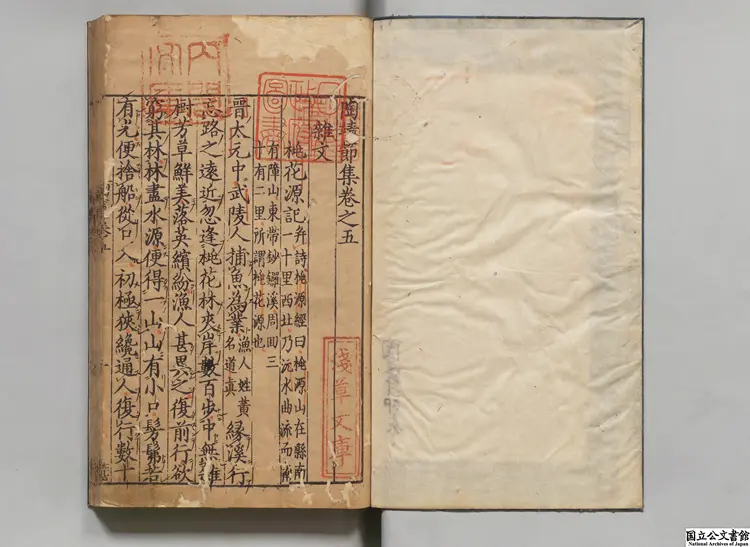 陶靖節集卷之五
雜文
桃花源記 并詩 桃源經曰桃源山在縣南
一十里西北乃沅水曲流而南
有障山東帶鈔鑼溪周囬三
十有二里所謂桃花源也
晉太元中武陵人捕魚為業 漁人姓黃名道真 緣溪行
忘路之遠近忽逢桃花林夾岸數百步中無雜
樹芳草鮮美落英繽紛漁人甚異之復前行欲
窮其林林盡水源便得一山山有小口髣髴若
有光便捨船從口入初極狹纔通人復行數十
淺草文庫
国立公文書館
National Archives of Japan